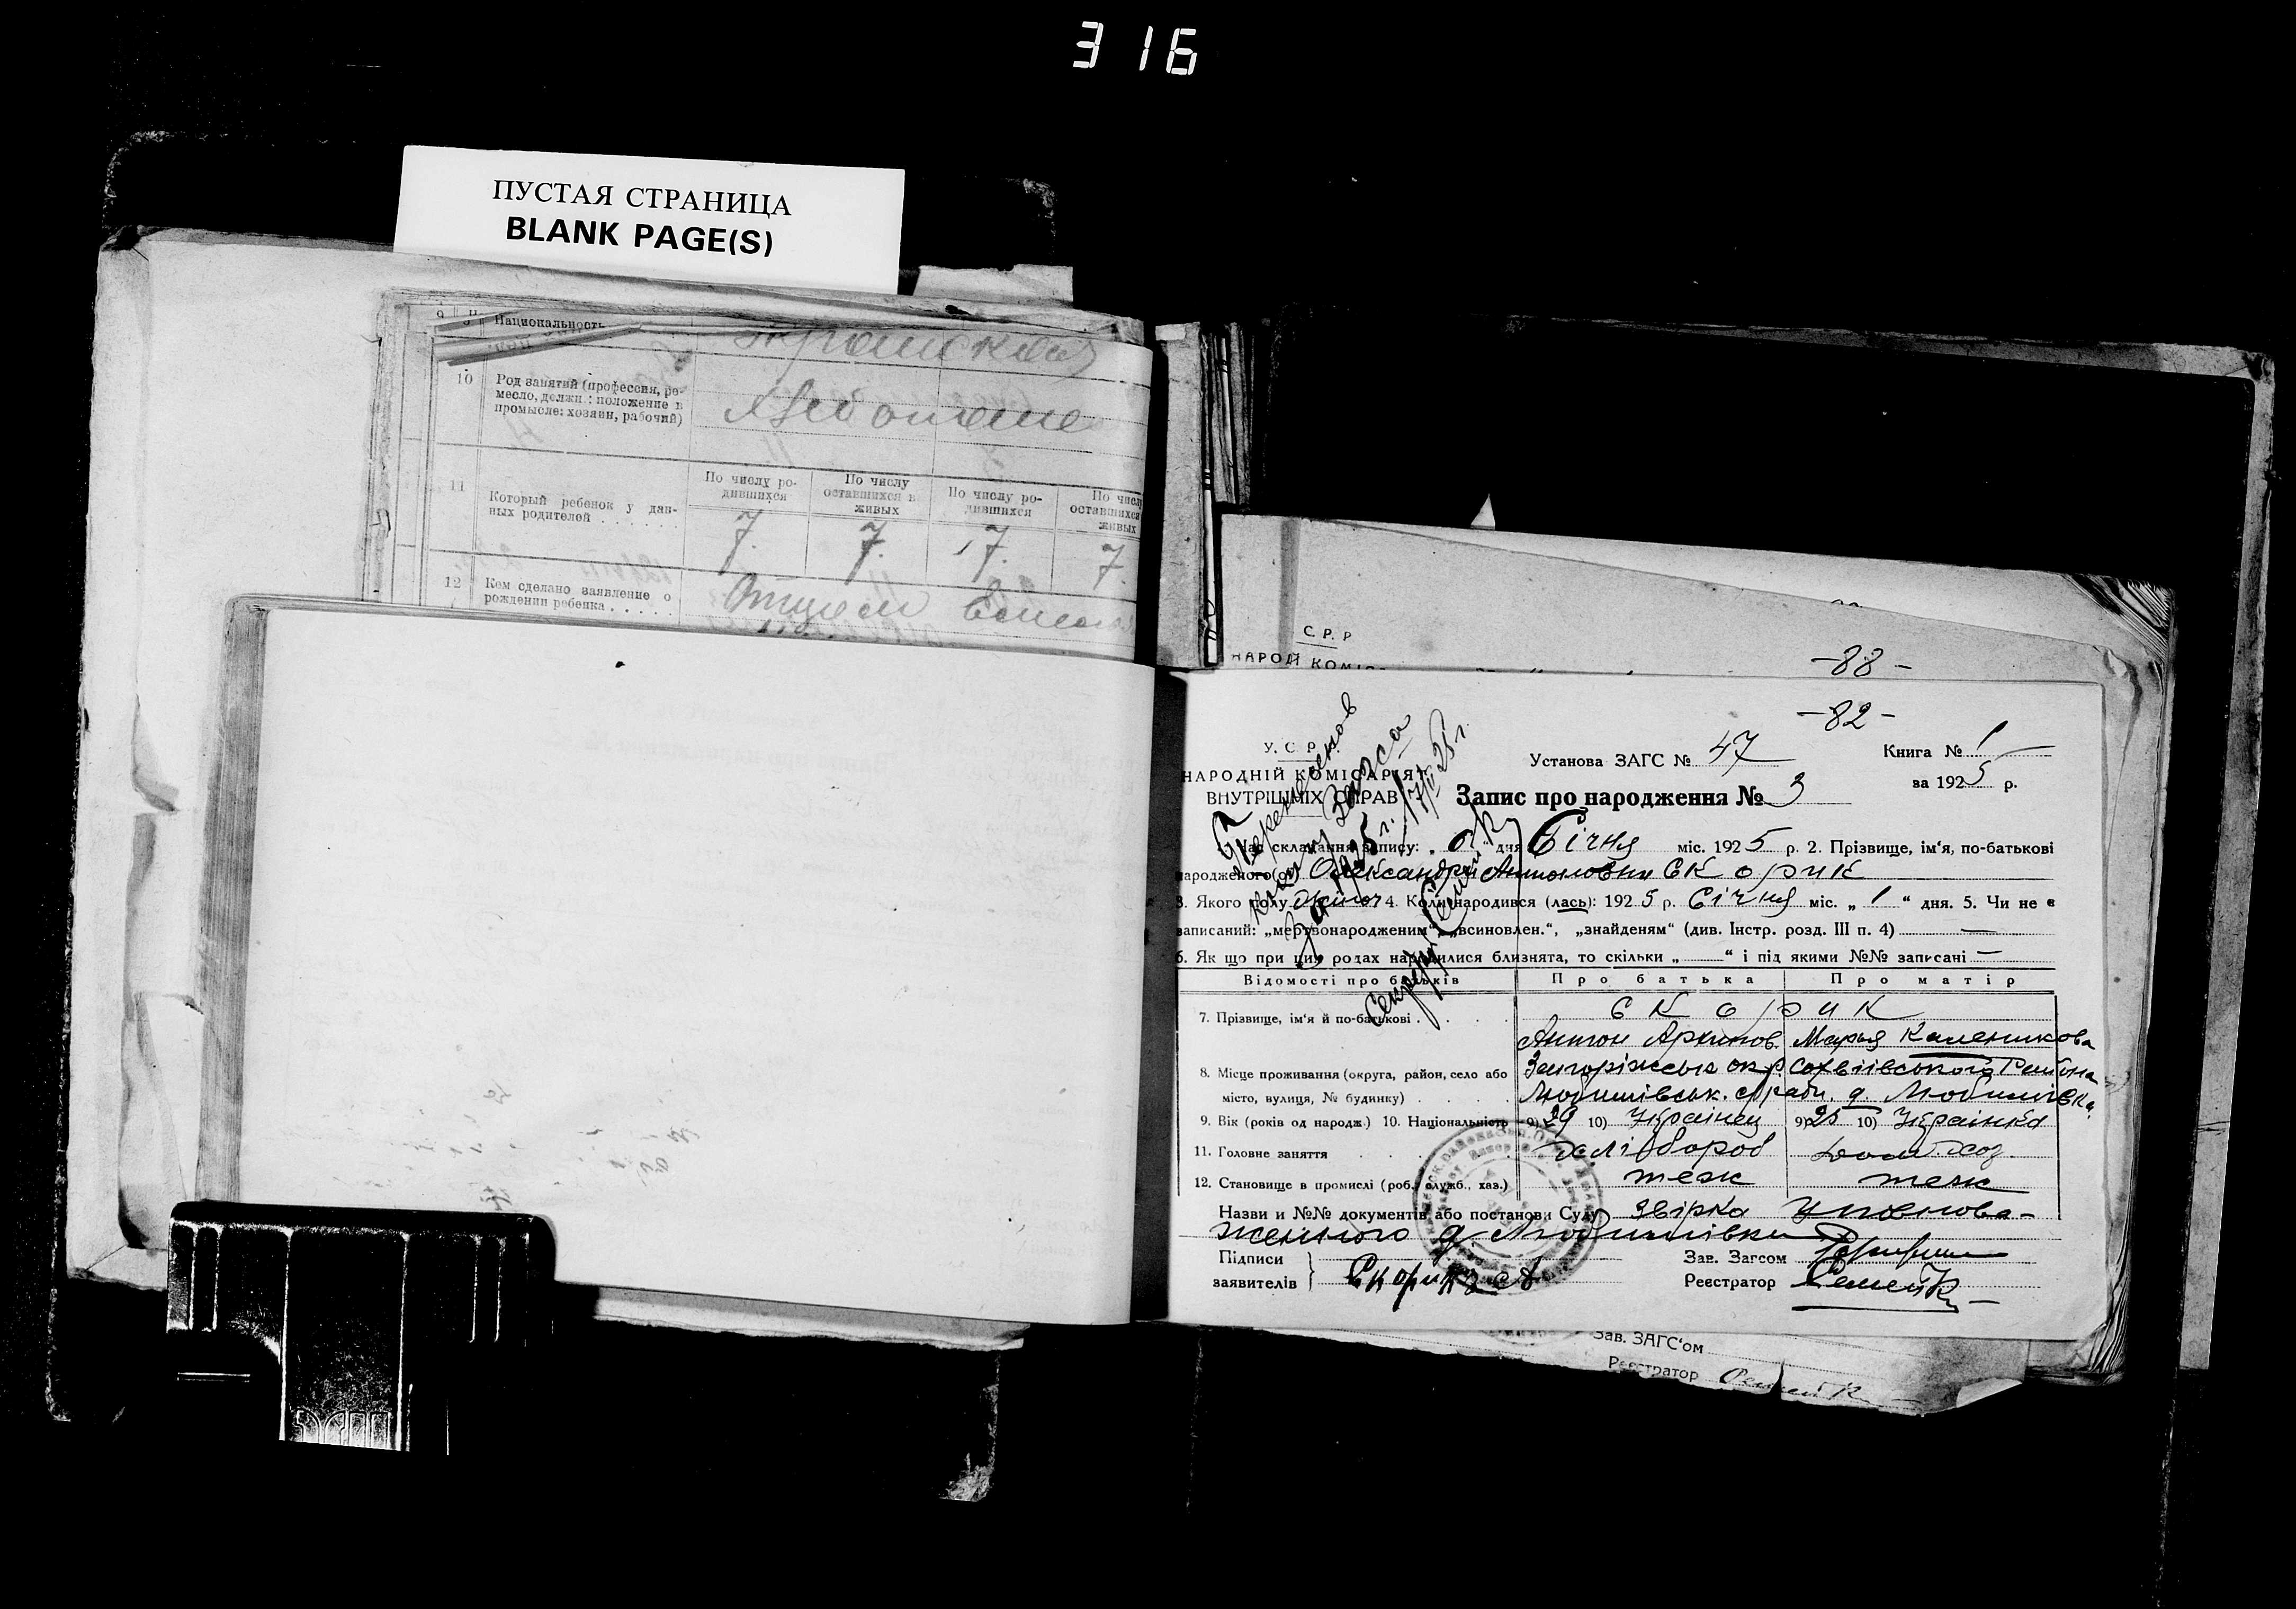 316
ПУСТАЯ СТРАНИЦА
BLANK PAGE(S)
9 Национальность
10 Род занятий (профессия, ре-
месло, должн.; положение в
промысле: хозяин, рабочий)
11 Который ребенок у дан-
ных родителей . . . . . . .
По числу ро-
дившихся
По числу
оставшихся в
живых
По числу ро-
дившихся
По числу
оставшихся
живых
7. 7. 7. 7.
12 Кем сделано заявление о
рождении ребенка . . . . . .
Отцом
С. Р. Р
НАРОД КОМІС
-88-
-82-
У. С. Р. Р.
НАРОДНІЙ КОМІСАРІЯТ
ВНУТРІШНІХ СПРАВ
Установа ЗАГС № 47
Книга № 1
за 1925 р.
Запис про народження № 3
Час складання запису: „ “ дня Січня міс. 1925 р. 2. Прізвище, ім‘я, по-батькові
народженого(ої) Олександра Антоновна Скорик
3. Якого полу жіноч 4. Коли народився (лась): 1925 р. Січня міс. „ 1 “ дня. 5. Чи не є
записаний: „мертвонародженим“, „всиновлен.“, „знайденям“ (див. Інстр. розд. III п. 4) —
6. Як що при цих родах народилися близнята, то скільки „ — “ і під якими №№ записані —
Відомості про батьків Про батька Про матір
7. Прізвище, ім‘я й по-батькові . . . . .
Скорик
Антон Архипов. Марья Каленикова
8. Місце проживання (округа, район, село або
місто, вулиця, № будинку) . . . . .
Запоріжська окр. Софіівського Района
Любимівськ. с/ради. д. Любимівка.
9. Вік (років од народж.) 10. Національність 9) 29 10) Украінец 9) 25 10) Украінка
11. Головне заняття . . . . . хлібороб дом хоз.
12. Становище в промислі (роб., служб., хаз.) теж теж
Назви и №№ документів або постанови Суду: Звірка Уповнова-
женного д. Любимівки
Підписи
заявителів Скорик А
Зав. Загсом
Реєстратор Семейк
Зав. ЗАГС‘ом
Реєстратор Семейк